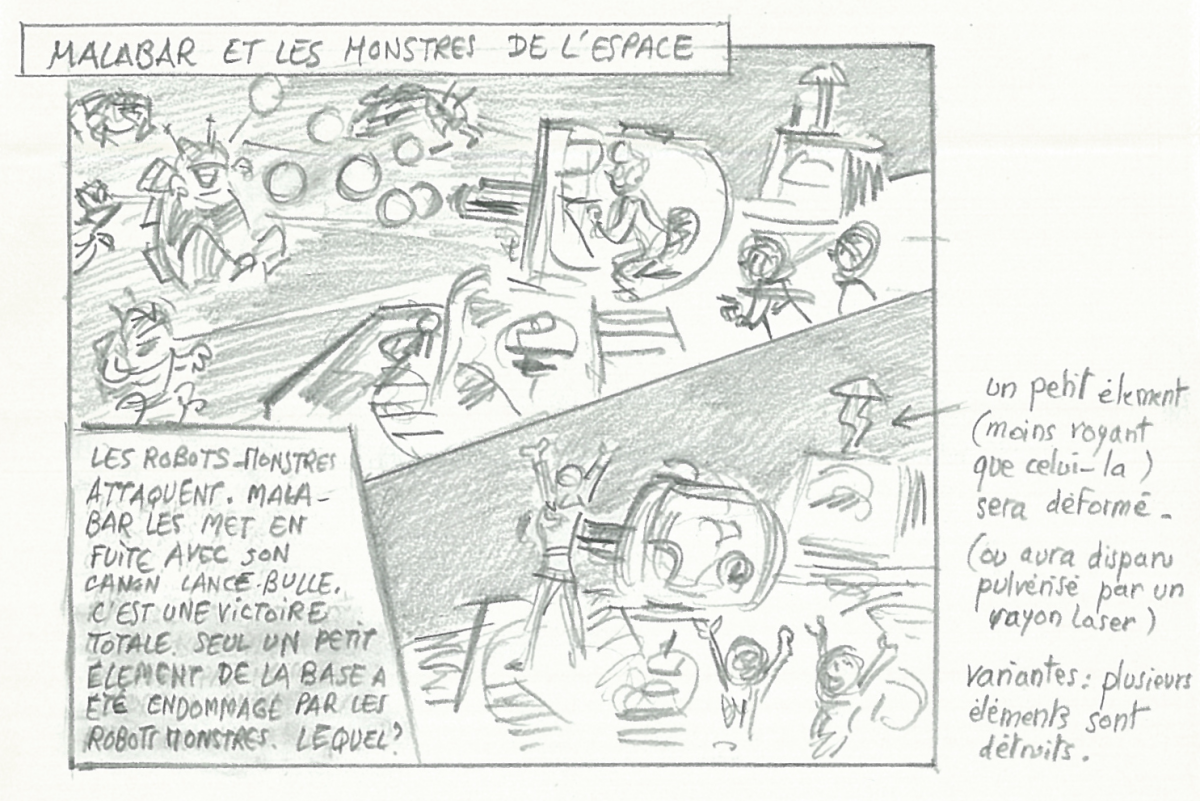 MALABAR ET LES MONSTRES DE L'ESPACE
LES ROBOTS-MONSTRES
ATTAQUENT. MALA-
BAR LES MET EN
FUITE AVEC SON
CANON LANCE-BULLE.
C'EST UNE VICTOIRE
TOTALE. SEUL UN PETIT
ÉLEMENT DE LA BASE A
ÉTÉ ENDOMMAGÉ PAR LES
ROBOTS MONSTRES. LEQUEL?
un petit élement
(moins voyant
que celui-la)
sera déformé.
(ou aura disparu
pulvérisé par un
rayon laser)
variantes: plusieurs
éléments sont
détruits.